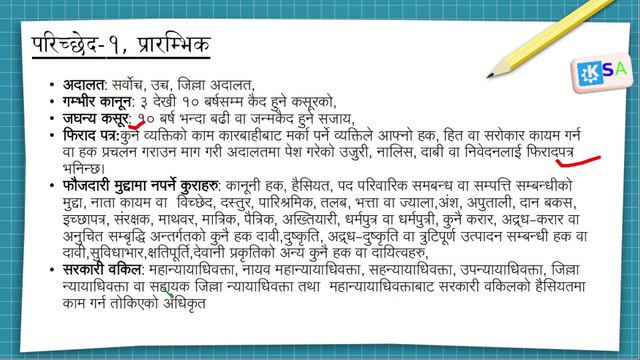 परिच्छेद-१, प्रारम्भिक
KSA
• अदालत: सर्वोच्च, उच्च, जिल्ला अदालत,
• गम्भीर कानून: ३ देखी १० बर्षसम्म कैद हुने कसूरको,
• जघन्य कसूर: १० बर्ष भन्दा बढी वा जन्मकैद हुने सजाय,
• फिराद पत्र:कुनै व्यक्तिको काम कारबाहीबाट मर्का पर्ने व्यक्तिले आफ्नो हक, हित वा सरोकार कायम गर्न
वा हक प्रचलन गराउन माग गरी अदालतमा पेश गरेको उजुरी, नालिस, दाबी वा निवेदनलाई फिरादपत्र
भनिनछ।
• फौजदारी मुद्दामा नपर्ने कुराहरु: कानूनी हक, हैसियत, पद परिवारिक समबन्ध वा सम्पत्ति सम्बन्धीको
मुद्दा, नाता कायम वा विच्छेद, दस्तुर, पारिश्रमिक, तलब, भत्ता वा ज्याला,अंश, अपुताली, दान बकस,
इच्छापत्र, संरक्षक, माथवर, मात्रिक, पैत्रिक, अख्तियारी, धर्मपुत्र वा धर्मपुत्री, कुनै करार, अद्र्ध-करार वा
अनुचित सम्बृद्धि अन्तर्गतको कुनै हक दावी,दुष्कृति, अद्र्ध-दुष्कृति वा त्रुटिपूर्ण उत्पादन सम्बन्धी हक वा
दावी,सुविधाभार,क्षतिपूर्ति,देवानी प्रकृतिको अन्य कुनै हक वा दायित्वहरु,
• सरकारी वकिल: महान्यायाधिवक्ता, नायव महान्यायाधिवक्ता, सहन्यायाधिवक्ता, उपन्यायाधिवक्ता, जिल्ला
न्यायाधिवक्ता वा सहायक जिल्ला न्यायाधिवक्ता तथा महान्यायाधिवक्ताबाट सरकारी वकिलको हैसियतमा
काम गर्न तोकिएको अधिकृत